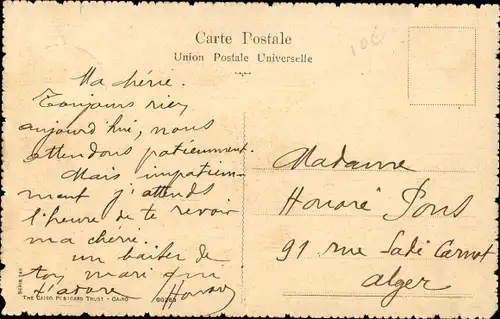 Carte Postale
Union Postale Universelle
Ma chérie.
Toujours rien
aujourd'hui, nous
attendons patiemment.
Mais impatiem-
ment j'attends
l'heure de te revoir
ma chérie.
un baiser de
ton mari qui
t'adore Honoré
Madame
Honoré Pons
91 rue Sadi Carnot
Alger
THE CAIRO POSTCARD TRUST - CAIRO